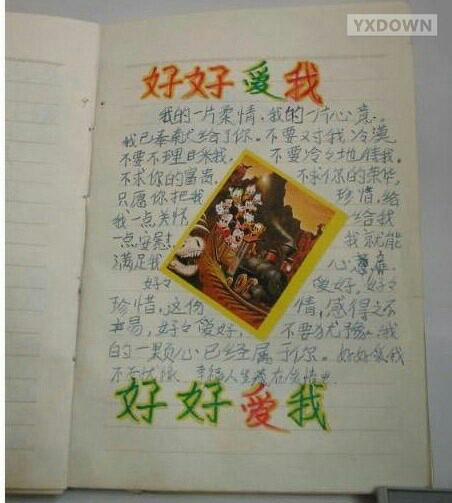 YXDOWN
好好爱我
我的一片柔情、我的一片心意。
我已奉献给了你。不要对我冷漠
不要不理日来我。 不要冷冷地
不求你的富贵 不求你的荣华,
只愿你把我 珍惜,给
我一点关怀 给我
一点安慰 我就能
满足我 心
好好 爱好,好好
珍惜,这份 情,感得之不
易,好々爱好, 不要犹豫,我
的一颗心已经属于你。好好爱我
不在忧 幸福人生
好好爱我